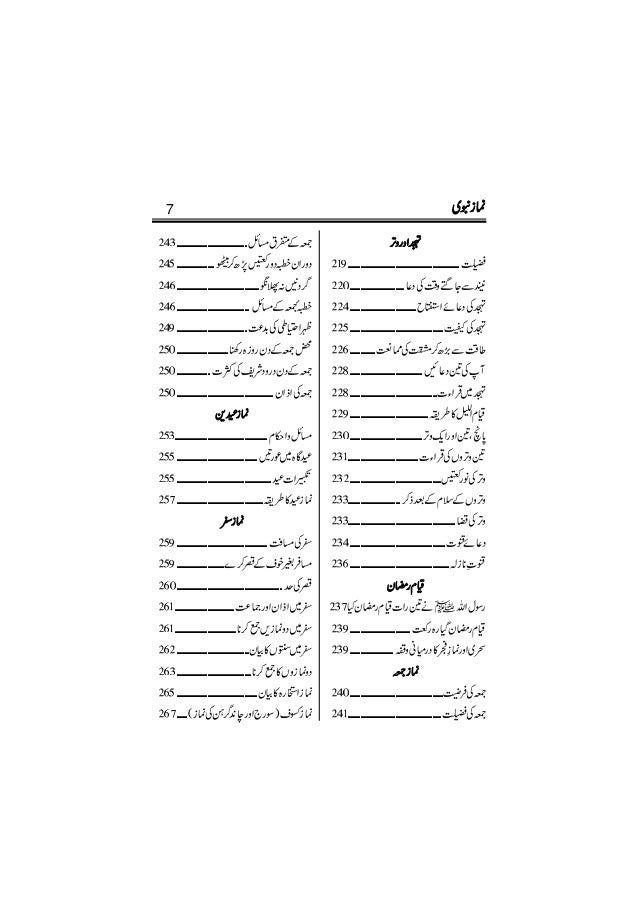 نماز نبوی 7
تہجد اور وتر
فضیلت 219
نیند سے جاگتے وقت کی دعا 220
تہجد کی دعائے استفتاح 224
تہجد کی کیفیت 225
طاقت سے بڑھ کر مشقت کی ممانعت 226
آپ کی تین دعائیں 228
تہجد میں قراءت 228
قیام اللیل کا طریقہ 229
پانچ، تین اور ایک وتر 230
تین وتروں کی قراءت 231
وتر کی نو رکعتیں 232
وتروں کے سلام کے بعد ذکر 233
وتر کی قضا 233
دعائے قنوت 234
قنوت نازلہ 236
قیام رمضان
رسول اللہ ﷺ نے تین رات قیام رمضان کیا 237
قیام رمضان گیارہ رکعت 239
سحری اور نماز فجر کا درمیانی وقفہ 239
نماز جمعہ
جمعہ کی فرضیت 240
جمعہ کی فضیلت 241
جمعہ کے متفرق مسائل 243
دوران خطبہ دو رکعتیں پڑھ کر بیٹھو 245
گردنیں نہ پھلانگو 246
خطبہ جمعہ کے مسائل 246
ظہر احتیاطی کی بدعت 249
محض جمعہ کے دن روزہ رکھنا 250
جمعہ کے دن درود شریف کی کثرت 250
جمعہ کی اذان 250
نماز عیدین
مسائل و احکام 253
عیدگاہ میں عورتیں 255
تکبیرات عید 255
نماز عید کا طریقہ 257
نماز سفر
سفر کی مسافت 259
مسافر بغیر خوف کے قصر کرے 259
قصر کی حد 260
سفر میں اذان اور جماعت 261
سفر میں دو نمازیں جمع کرنا 261
سفر میں سنتوں کا بیان 262
دو نمازوں کا جمع کرنا 263
نماز استخارہ کا بیان 265
نماز کسوف (سورج اور چاند گرہن کی نماز) 267